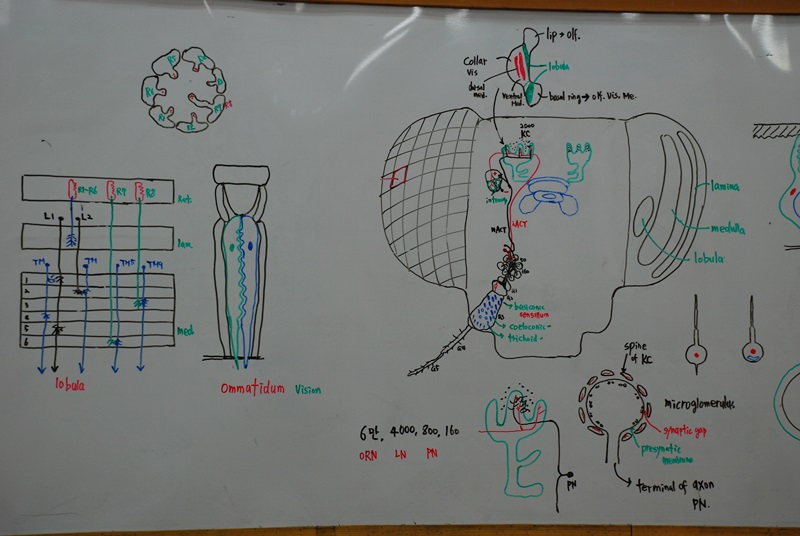 R5
R6
R1
R2
R7
R8
R1-R6
R7
R8
Ret.
L1
L2
lam
TM
TM
TM5
TM9
1
2
3
4
5
6
med
lobula
Ommatidum Vision
lip → olf.
Collar
Vis
dorsal
med.
ventral
Med.
lobula
basal ring → olf. Vis. Me.
2000
KC
mACT
lACT
lamina
medulla
lobula
basiconic
sensillum
coeloconic -
trichoid -
6만, 4000, 800, 160
ORN LN PN
PN
spine
of KC
microglomerulus
synaptic gap
presynatic
membrane
terminal of axon
PN.